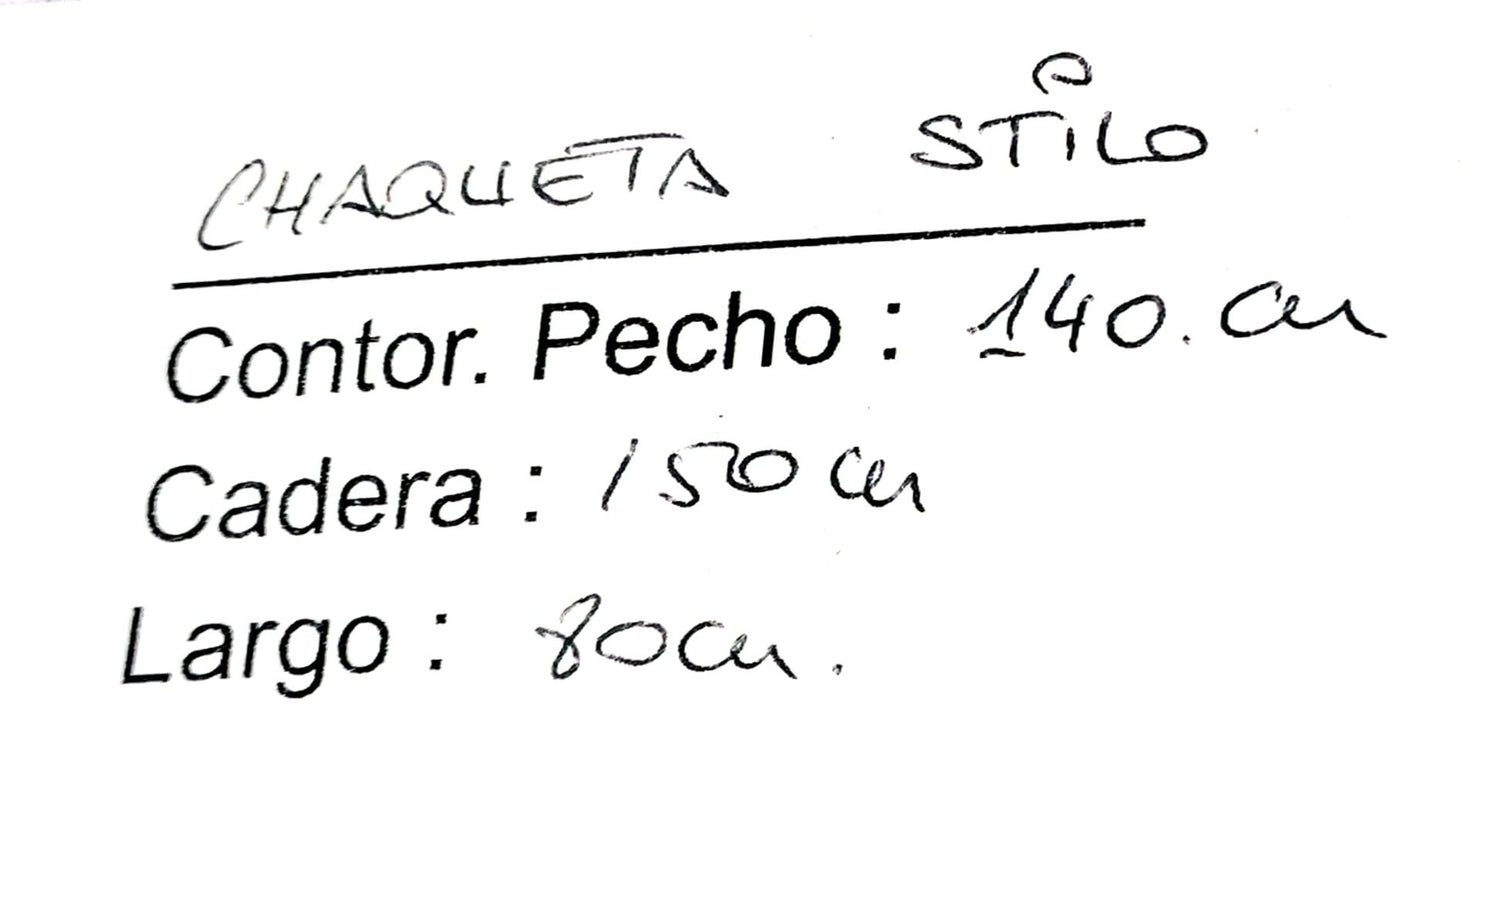 CHAQUETA STILO
Contor. Pecho : 140. cm
Cadera : 150 cm
Largo : 80cm.